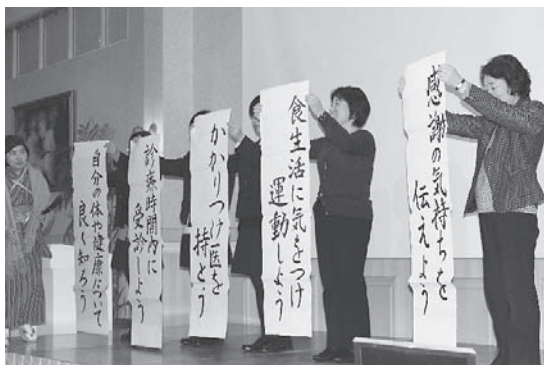 感謝の気持ちを
伝えよう
食生活に気をつけ
運動しよう
かかりつけ医を
持とう
診療時間内に
受診しよう
自分の体や健康について
良く知ろう